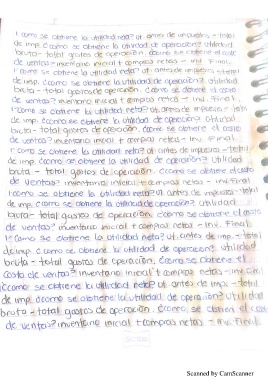 ¿como se obtiene la utilidad neta? ut antes de impuestos - total
de imp. ¿como se obtiene la utilidad de operación? Utilidad
bruta - total gastos de operación. ¿como se obtiene el costo
de ventas? inventario inicial + compras netas - inv. Final
¿como se obtiene la utilidad neta? ut antes de impuestos - total
de imp. ¿como se obtiene la utilidad de operación? Utilidad
bruta - total gastos de operación. ¿como se obtiene el costo
de ventas? inventario inicial + compras netas - inv. Final
¿como se obtiene la utilidad neta? ut antes de impuestos - total
de imp. ¿como se obtiene la utilidad de operación? Utilidad
bruta - total gastos de operación. ¿como se obtiene el costo
de ventas? inventario inicial + compras netas - inv. Final
¿como se obtiene la utilidad neta? ut antes de impuestos - total
de imp. ¿como se obtiene la utilidad de operación? Utilidad
bruta - total gastos de operación. ¿como se obtiene el costo
de ventas? inventario inicial + compras netas - inv. Final
¿como se obtiene la utilidad neta? ut antes de impuestos - total
de imp. ¿como se obtiene la utilidad de operación? Utilidad
bruta - total gastos de operación. ¿como se obtiene el costo
de ventas? inventario inicial + compras netas - inv. Final
¿Como se obtiene la utilidad neta? ut. antes de imp. - total
de imp. ¿como se obtiene la utilidad de operación? Utilidad
bruta - total gastos de operación. ¿como se obtiene el
costo de ventas? inventario inicial + compras netas - inv. Final
¿como se obtiene la utilidad neta? ut antes de imp. - total
de imp. ¿como se obtiene la utilidad de operación? Utilidad
bruta - total gastos de operación. ¿como se obtiene el costo
de ventas? inventario inicial + compras netas - inv. Final.
Scanned by CamScanner